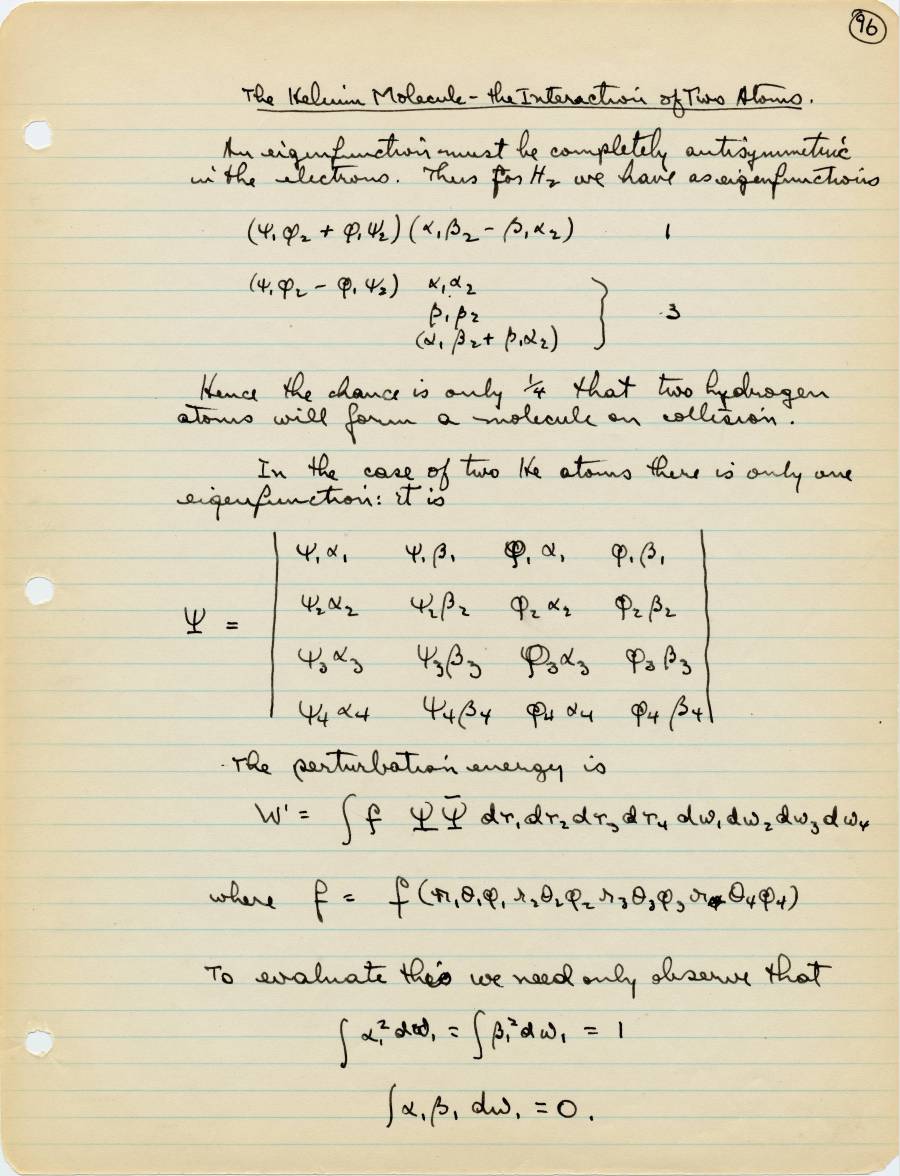 96
The Helium Molecule - the Interaction of Two Atoms.
An eigenfunction must be completely antisymmetric
in the electrons. Thus for H₂ we have as eigenfunctions
(ψ₁φ₂ + φ₁ψ₂)(α₁β₂ - β₁α₂) 1
(ψ₁φ₂ - φ₁ψ₂) α₁α₂
β₁β₂ } 3
(α₁β₂ + β₁α₂)
Hence the chance is only 1/4 that two hydrogen
atoms will form a molecule on collision.
In the case of two He atoms there is only one
eigenfunction: it is
ψ₁α₁ ψ₁β₁ φ₁α₁ φ₁β₁
ψ₂α₂ ψ₂β₂ φ₂α₂ φ₂β₂
Ψ =
ψ₃α₃ ψ₃β₃ φ₃α₃ φ₃β₃
ψ₄α₄ ψ₄β₄ φ₄α₄ φ₄β₄
The perturbation energy is
W' = ∫ f Ψ Ψ̄ dτ₁dτ₂dτ₃dτ₄ dω₁dω₂dω₃dω₄
where f = f(r₁θ₁φ₁ r₂θ₂φ₂ r₃θ₃φ₃ r₄θ₄φ₄)
To evaluate this we need only observe that
∫α₁²dω₁ = ∫β₁²dω₁ = 1
∫α₁β₁ dω₁ = 0.